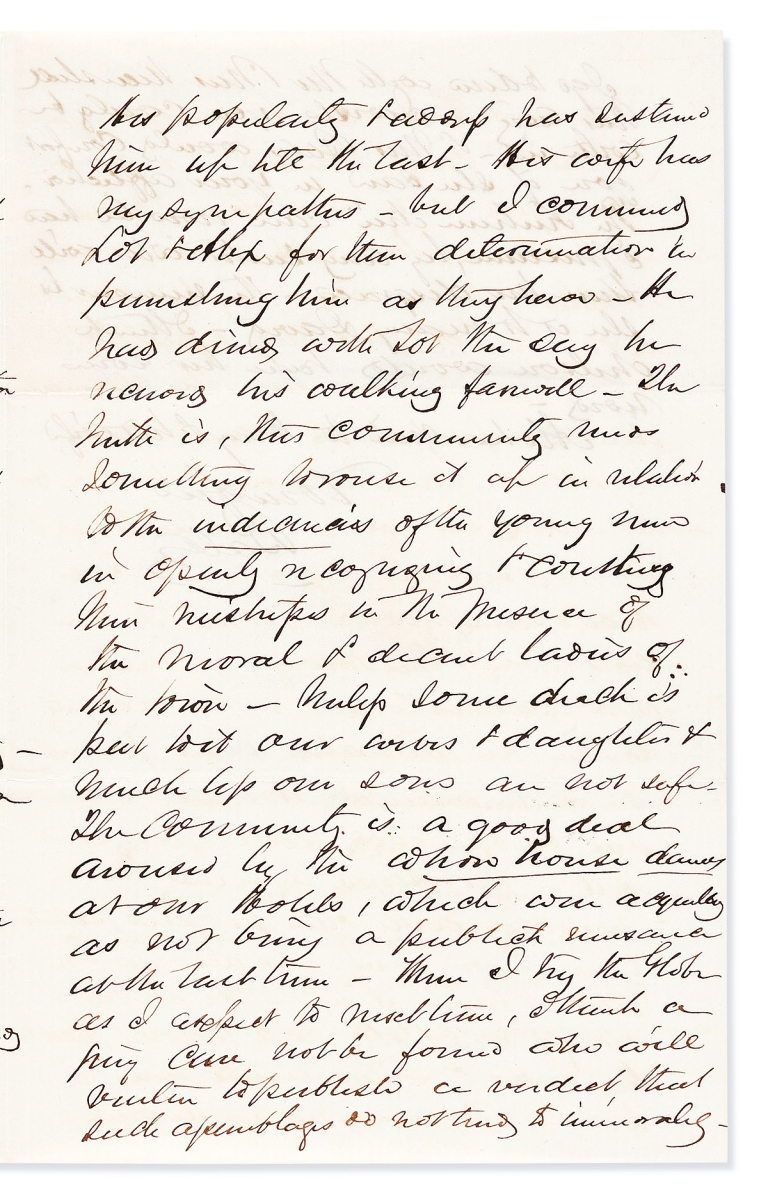 his popularity & address has sustained
him up till the last - His wife has
my sympathies - but I commend
Lot & for their determination in
punishing him as they have - He
had dined with Lot the day he
received his walking farewell - The
truth is, this community needs
something to rouse it up in relation
to the indecencies of the young men
in openly recognizing & courting
their mistresses in the presence of
the moral & decent ladies of
the town - Unless some check is
put to it our wives & daughters &
much less our sons are not safe -
The Community is a good deal
aroused by the whore house dances
at our Hotels, which were acquitted
as not being a publick nuisance
at the last time - When I try the Globe
as I expect to next time, I think a
jury can not be found who will
venture to publish a verdict that
such assemblages do not tend to immorality -